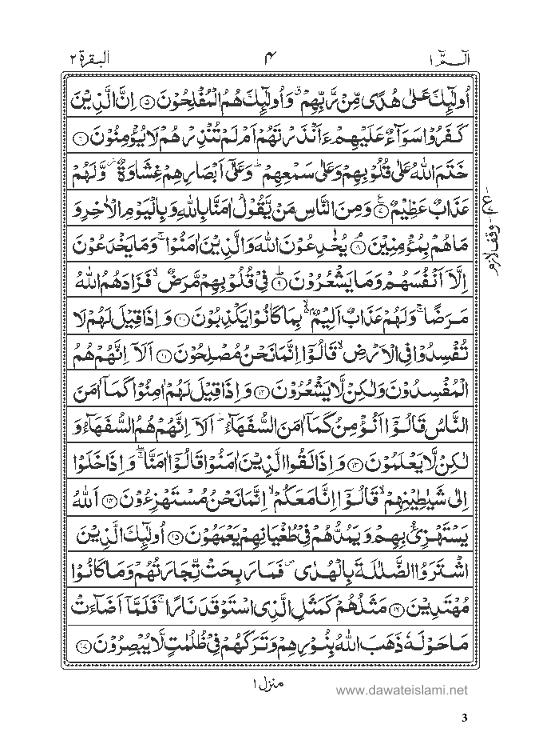 الٓمّٓ ١ ٤ البقرة ٢
اُولٰٓئِكَ عَلٰى هُدًى مِّنْ رَّبِّهِمْ ۗ وَاُولٰٓئِكَ هُمُ الْمُفْلِحُوْنَ ۝٥ اِنَّ الَّذِيْنَ
كَفَرُوْا سَوَآءٌ عَلَيْهِمْ ءَاَنْذَرْتَهُمْ اَمْ لَمْ تُنْذِرْهُمْ لَا يُؤْمِنُوْنَ ۝٦
خَتَمَ اللّٰهُ عَلٰى قُلُوْبِهِمْ وَعَلٰى سَمْعِهِمْ ؕ وَعَلٰٓى اَبْصَارِهِمْ غِشَاوَةٌ ۫ وَّلَهُمْ
عَذَابٌ عَظِيْمٌ ۝٧ وَمِنَ النَّاسِ مَنْ يَّقُوْلُ اٰمَنَّا بِاللّٰهِ وَبِالْيَوْمِ الْاٰخِرِ وَ
مَا هُمْ بِمُؤْمِنِيْنَ ۝٨ يُخٰدِعُوْنَ اللّٰهَ وَالَّذِيْنَ اٰمَنُوْا ۚ وَمَا يَخْدَعُوْنَ
اِلَّاۤ اَنْفُسَهُمْ وَمَا يَشْعُرُوْنَ ۝٩ فِيْ قُلُوْبِهِمْ مَّرَضٌ ۙ فَزَادَهُمُ اللّٰهُ
مَرَضًا ۚ وَلَهُمْ عَذَابٌ اَلِيْمٌۢ ۙ بِمَا كَانُوْا يَكْذِبُوْنَ ۝١٠ وَاِذَا قِيْلَ لَهُمْ لَا
تُفْسِدُوْا فِي الْاَرْضِ ۙ قَالُوْۤا اِنَّمَا نَحْنُ مُصْلِحُوْنَ ۝١١ اَلَاۤ اِنَّهُمْ هُمُ
الْمُفْسِدُوْنَ وَلٰكِنْ لَّا يَشْعُرُوْنَ ۝١٢ وَاِذَا قِيْلَ لَهُمْ اٰمِنُوْا كَمَاۤ اٰمَنَ
النَّاسُ قَالُوْۤا اَنُؤْمِنُ كَمَاۤ اٰمَنَ السُّفَهَآءُ ؕ اَلَاۤ اِنَّهُمْ هُمُ السُّفَهَآءُ وَ
لٰكِنْ لَّا يَعْلَمُوْنَ ۝١٣ وَاِذَا لَقُوا الَّذِيْنَ اٰمَنُوْا قَالُوْۤا اٰمَنَّا ۖۚ وَاِذَا خَلَوْا
اِلٰى شَيٰطِيْنِهِمْ ۙ قَالُوْۤا اِنَّا مَعَكُمْ ۙ اِنَّمَا نَحْنُ مُسْتَهْزِءُوْنَ ۝١٤ اَللّٰهُ
يَسْتَهْزِئُ بِهِمْ وَيَمُدُّهُمْ فِيْ طُغْيَانِهِمْ يَعْمَهُوْنَ ۝١٥ اُولٰٓئِكَ الَّذِيْنَ
اشْتَرَوُا الضَّلٰلَةَ بِالْهُدٰى ۪ فَمَا رَبِحَتْ تِّجَارَتُهُمْ وَمَا كَانُوْا
مُهْتَدِيْنَ ۝١٦ مَثَلُهُمْ كَمَثَلِ الَّذِي اسْتَوْقَدَ نَارًا ۚ فَلَمَّاۤ اَضَآءَتْ
مَا حَوْلَهٗ ذَهَبَ اللّٰهُ بِنُوْرِهِمْ وَتَرَكَهُمْ فِيْ ظُلُمٰتٍ لَّا يُبْصِرُوْنَ ۝١٧
وقف لازم
منزل ١
www.dawateislami.net
3